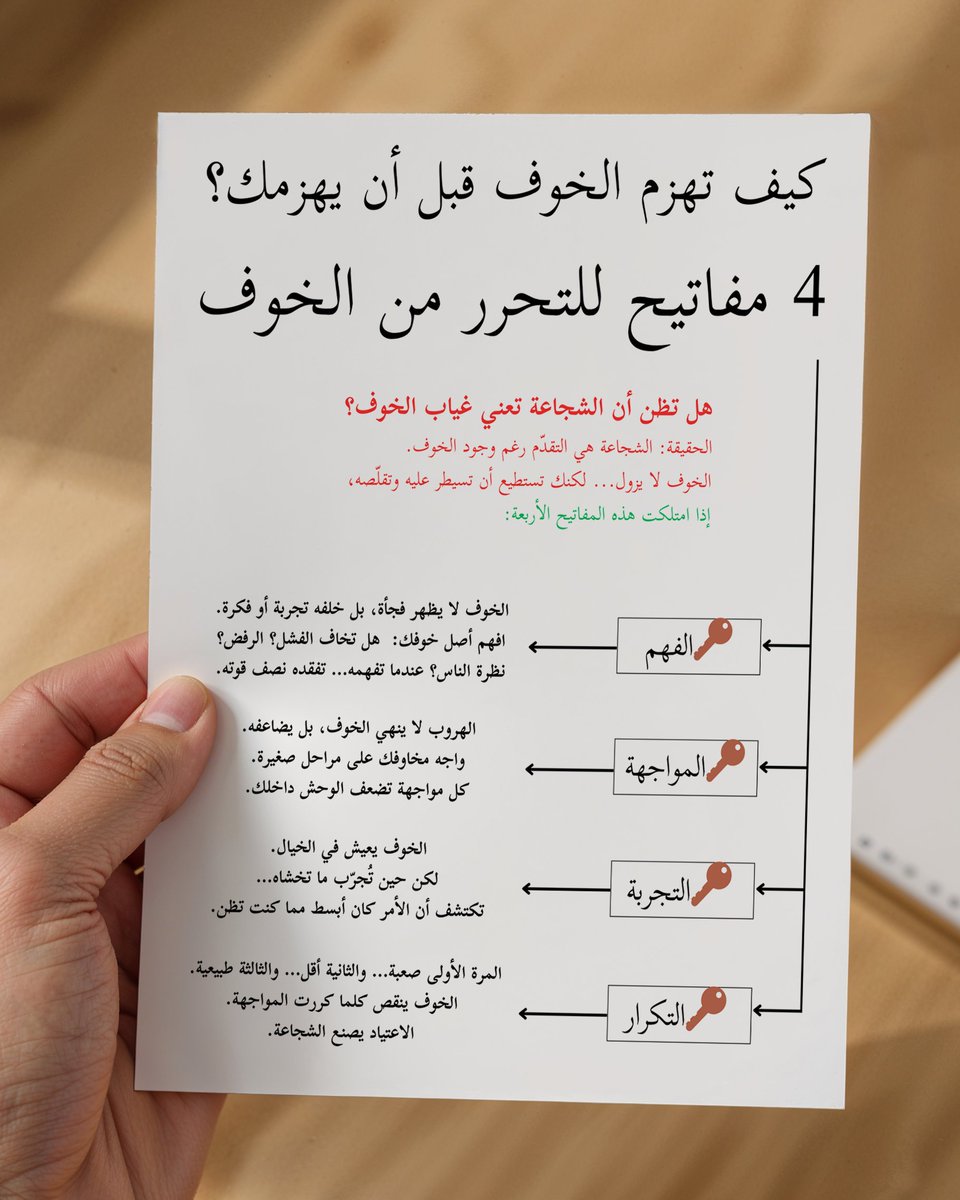 كيف تهزم الخوف قبل أن يهزمك؟
4 مفاتيح للتحرر من الخوف
هل تظن أن الشجاعة تعني غياب الخوف؟
الحقيقة: الشجاعة هي التقدّم رغم وجود الخوف.
الخوف لا يزول... لكنك تستطيع أن تسيطر عليه وتقلّصه،
إذا امتلكت هذه المفاتيح الأربعة:
الفهم
الخوف لا يظهر فجأة، بل خلفه تجربة أو فكرة.
افهم أصل خوفك: هل تخاف الفشل؟ الرفض؟
نظرة الناس؟ عندما تفهمه... تفقده نصف قوته.
المواجهة
الهروب لا ينهي الخوف، بل يضاعفه.
واجه مخاوفك على مراحل صغيرة.
كل مواجهة تضعف الوحش داخلك.
التجربة
الخوف يعيش في الخيال.
لكن حين تُجرّب ما تخشاه...
تكتشف أن الأمر كان أبسط مما كنت تظن.
التكرار
المرة الأولى صعبة... والثانية أقل... والثالثة طبيعية.
الخوف ينقص كلما كررت المواجهة.
الاعتياد يصنع الشجاعة.